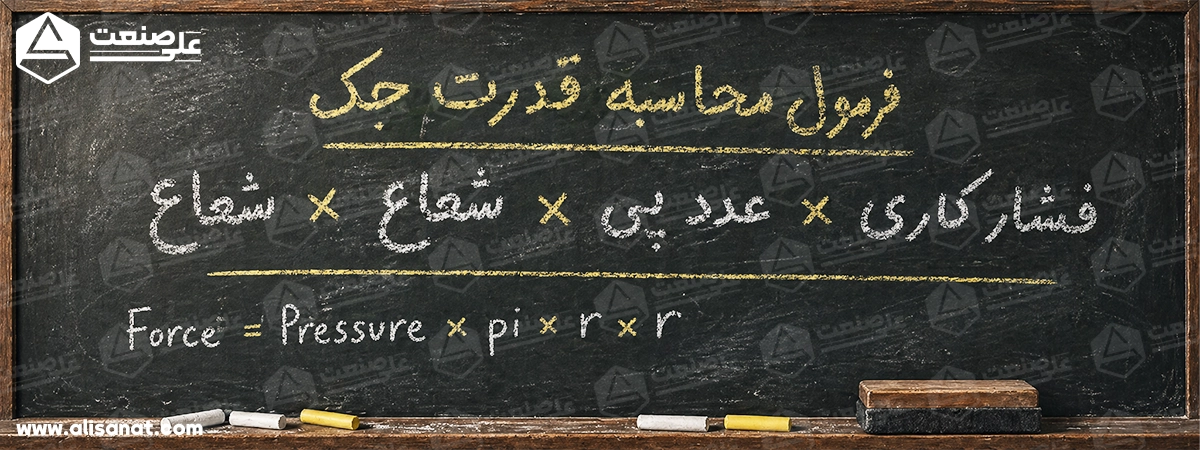 علی صنعت
فرمول محاسبه قدرت جک
فشار کاری × عدد پی × شعاع × شعاع
Force = Pressure × pi × r × r
www.alisanat.com